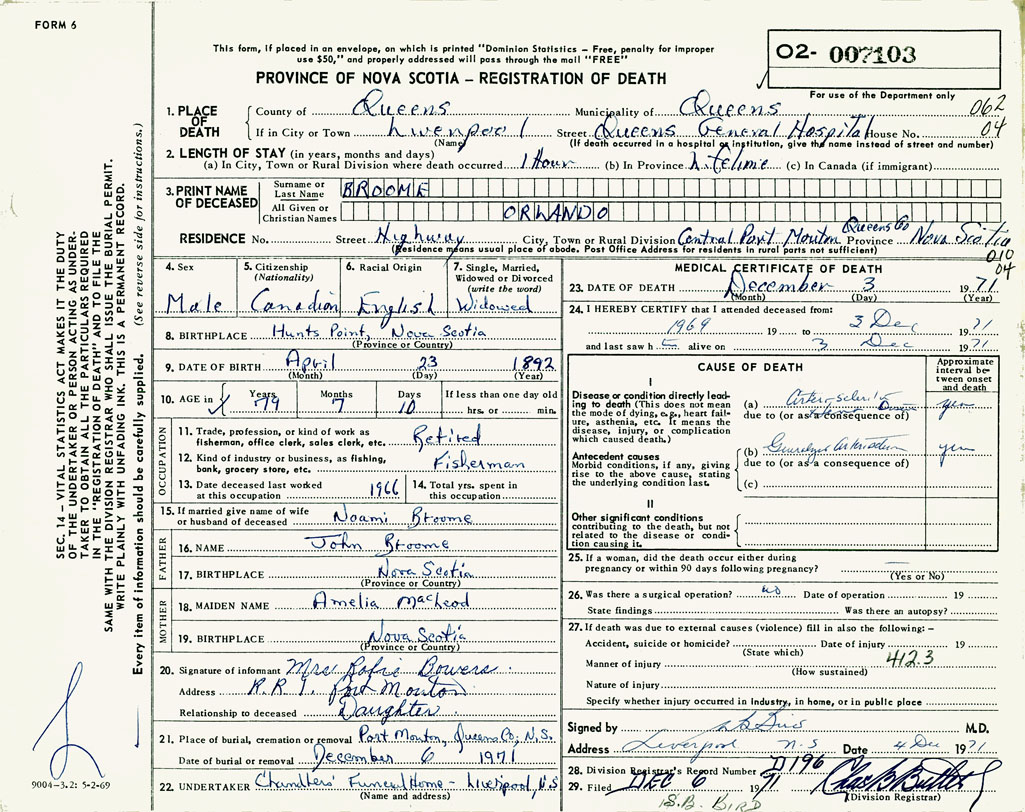 FORM 6
This form, if placed in an envelope, on which is printed "Dominion Statistics – Free, penalty for improper
use $50," and properly addressed will pass through the mail "FREE"
02- 007103
PROVINCE OF NOVA SCOTIA – REGISTRATION OF DEATH
For use of the Department only
062
04
1. PLACE OF DEATH
County of Queens Municipality of Queens
If in City or Town Liverpool Street Queens General Hospital House No.
(Name) (If death occurred in a hospital or institution, give the name instead of street and number)
2. LENGTH OF STAY (in years, months and days)
(a) In City, Town or Rural Division where death occurred 1 Hour (b) In Province Lifetime (c) In Canada (if immigrant)
3. PRINT NAME OF DECEASED
Surname or Last Name BROOME
All Given or Christian Names ORLANDO
RESIDENCE No. Street Highway City, Town or Rural Division Central Port Mouton Queens Co Province Nova Scotia
(Residence means usual place of abode. Post Office Address for residents in rural parts not sufficient)
010
04
4. Sex Male
5. Citizenship (Nationality) Canadian
6. Racial Origin English
7. Single, Married, Widowed or Divorced (write the word) Widowed
8. BIRTHPLACE Hunts Point, Nova Scotia
(Province or Country)
9. DATE OF BIRTH April 23 1892
(Month) (Day) (Year)
10. AGE in Years 79 Months 7 Days 10 If less than one day old hrs. or min.
OCCUPATION
11. Trade, profession, or kind of work as fisherman, office clerk, sales clerk, etc. Retired
12. Kind of industry or business, as fishing, bank, grocery store, etc. Fisherman
13. Date deceased last worked at this occupation 1966
14. Total yrs. spent in this occupation
15. If married give name of wife or husband of deceased Noami Broome
FATHER
16. NAME John Broome
17. BIRTHPLACE Nova Scotia
(Province or Country)
MOTHER
18. MAIDEN NAME Amelia MacLeod
19. BIRTHPLACE Nova Scotia
(Province or Country)
20. Signature of informant Mrs Robie Bowers
Address R.R 1. Port Mouton
Relationship to deceased Daughter
21. Place of burial, cremation or removal Port Mouton, Queens Co; N.S.
Date of burial or removal December 6 1971
22. UNDERTAKER Chandlers' Funeral Home - Liverpool, N.S
(Name and address)
MEDICAL CERTIFICATE OF DEATH
23. DATE OF DEATH December 3 1971
(Month) (Day) (Year)
24. I HEREBY CERTIFY that I attended deceased from:
1969 19 to 3 Dec 1971
and last saw h alive on 3 Dec 1971
CAUSE OF DEATH
Approximate interval between onset and death
I
Disease or condition directly leading to death (This does not mean the mode of dying, e.g., heart failure, asthenia, etc. It means the disease, injury, or complication which caused death.)
(a)
due to (or as a consequence of)
Antecedent causes
Morbid conditions, if any, giving rise to the above cause, stating the underlying condition last.
(b)
due to (or as a consequence of)
(c)
II
Other significant conditions
contributing to the death, but not related to the disease or condition causing it.
25. If a woman, did the death occur either during
pregnancy or within 90 days following pregnancy?
(Yes or No)
26. Was there a surgical operation? no Date of operation 19
State findings Was there an autopsy?
27. If death was due to external causes (violence) fill in also the following: –
Accident, suicide or homicide? Date of injury 19
(State which)
Manner of injury 412.3
(How sustained)
Nature of injury
Specify whether injury occurred in industry, in home, or in public place
Signed by M.D.
Address Liverpool N.S Date 4 Dec 1971
28. Division Registrar's Record Number D196
29. Filed DEC 6 1971
Division Registrar
S.B. BIRD
SEC. 14 – VITAL STATISTICS ACT MAKES IT THE DUTY
OF THE UNDERTAKER OR PERSON ACTING AS UNDER-
TAKER TO OBTAIN ALL THE PARTICULARS REQUIRED
IN THE "REGISTRATION OF DEATH" AND TO FILE THE
SAME WITH THE DIVISION REGISTRAR WHO SHALL ISSUE THE BURIAL PERMIT.
WRITE PLAINLY WITH UNFADING INK. THIS IS A PERMANENT RECORD.
Every item of information should be carefully supplied. (See reverse side for instructions.)
9004–3.2: 5-2-69